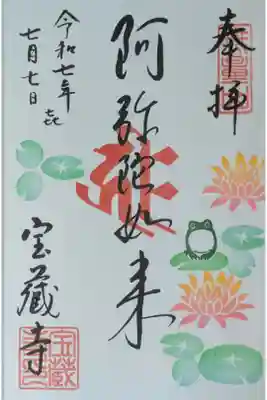 奉拝
阿弥陀如来
令和七年
七月七日
宝蔵寺